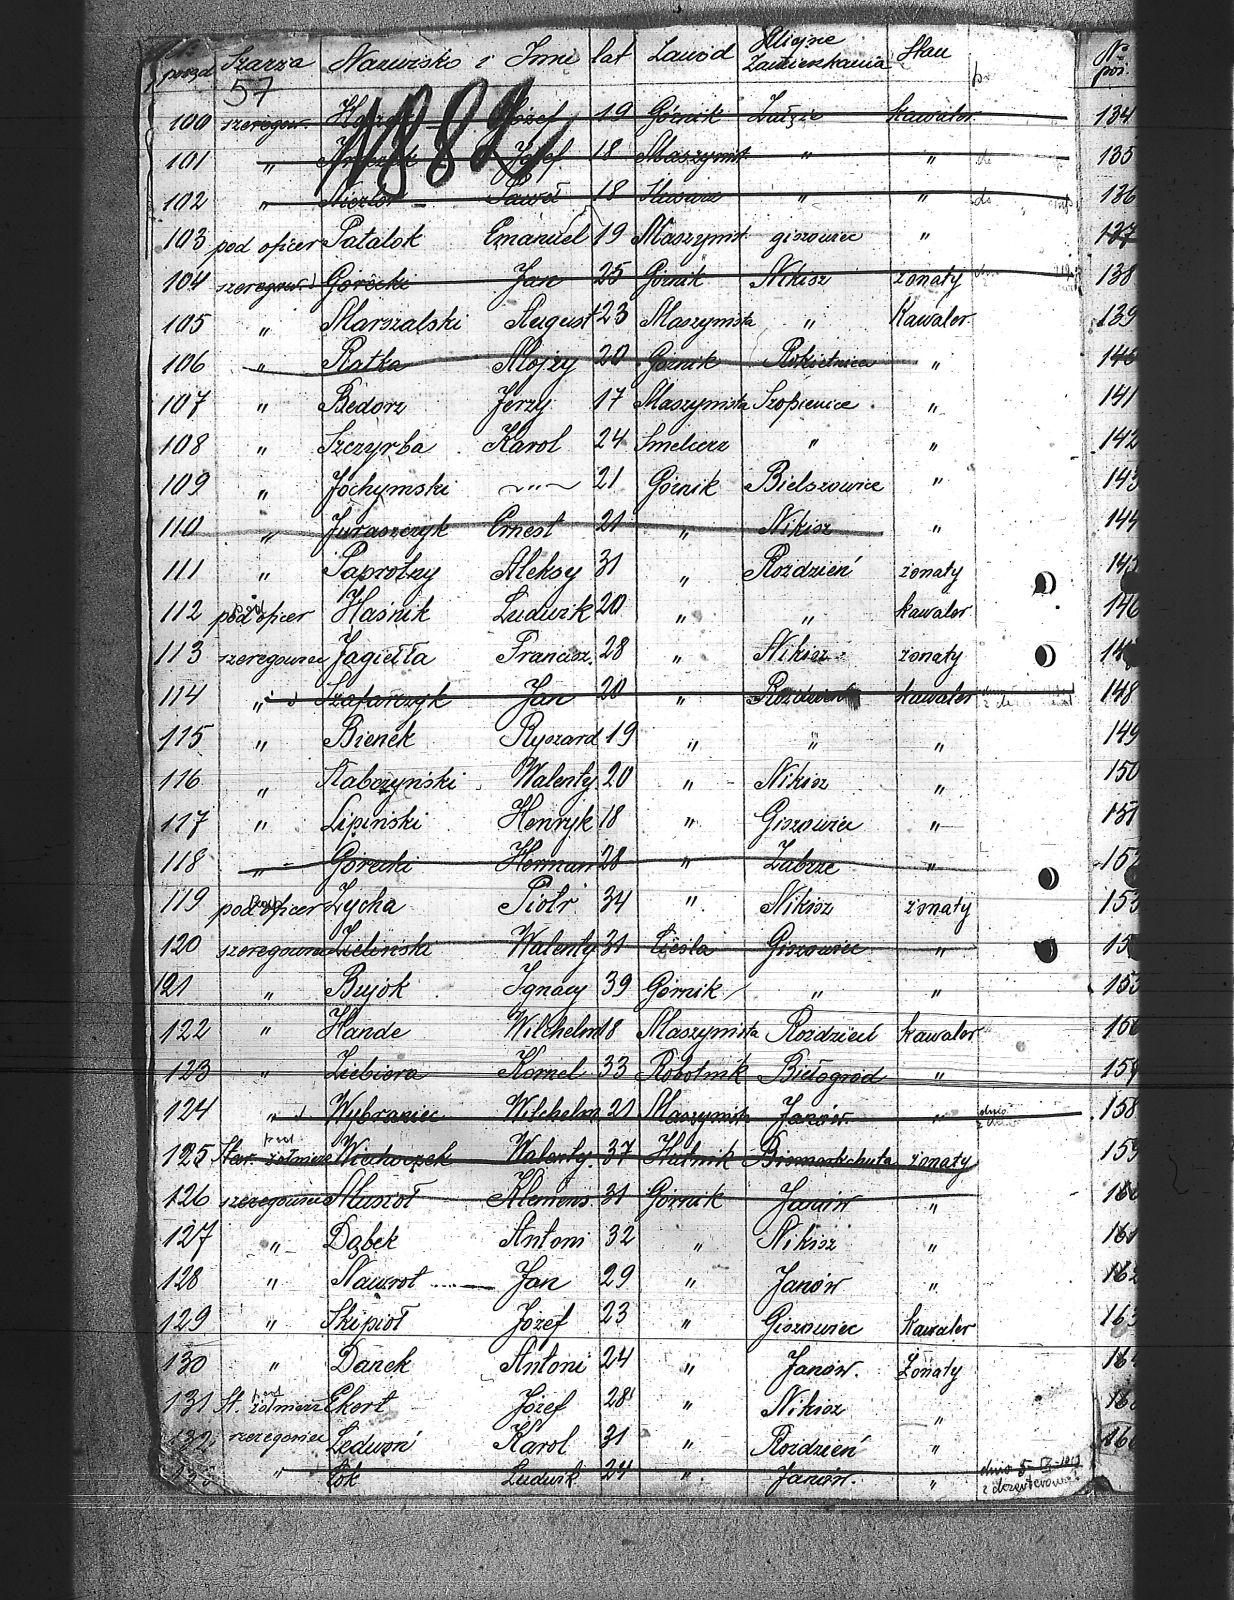 porząd Szarża Nazwisko i Imię lat Zawód Miejsce Zamieszkania Stan № poż.
57
1882
100 szeregow. Józef 19 Górnik Załęże Kawaler 134
101 " Józef 18 Maszynist. " " 135
102 " Paweł 18 Ślusarz " " 136
103 pod oficer Patalok Emanuel 19 Maszynist. giszowiec " 137
104 szeregow Górecki Jan 25 Górnik Nikisz żonaty 138
105 " Marszalski August 23 Maszynista " Kawaler. 139
106 " Ratka Alojzy 20 Górnik Rokietnica " 140
107 " Bedorz Jerzy 17 Maszynista Szopienice. " 141
108 " Szczyrba Karol 24 Smelcerz " " 142
109 " Jochymski " 21 Górnik Bielszowice " 143
110 " Juraszczyk Ernest 21 " Nikisz " 144
111 " Paprotny Aleksy 31 " Rozdzień żonaty 145
112 pod oficer Haśnik Ludwik 20 " " kawaler 146
113 szeregowiec Jagiełła Francisz. 28 " Nikisz żonaty
114 " Szafarczyk Jan 20 " Rozdzień kawaler 148
115 " Bienek Ryszard 19 " " " 149
116 " Kabczyński Walenty 20 " Nikisz " 150
117 " Lipiński Henryk 18 " Giszowiec " 151
118 " Górecki Herman 28 " Zabrze " 152
119 pod oficer Zycha Piotr 34 " Nikisz żonaty 153
120 szeregowiec Zieliński Walenty 31 Cieśla Giszowiec "
121 " Bujok Ignacy 39 Górnik " " 155
122 " Hande Wilchelm 18 Maszynista Rozdzień kawaler 156
123 " Ziebiera Kornel 33 Robotnik Białogród " 157
124 " Wybraniec Wilchelm 21 Maszynista Janów. " 158
125 Star. żołnierz Wieczorek Walenty. 37 Hutnik Bismarkhuta żonaty 159
126 szeregowiec Musioł Klemens. 31 Górnik Janów " 160
127 " Dąbek Antoni 32 " Nikisz " 161
128 " Nawrot Jan 29 " Janów " 162
129 " Skipioł Józef 23 " Giszowiec kawaler 163
130 " Danek Antoni 24 " Janów. Żonaty
131 St. żołnierz Ekert Józef 28 " Nikisz "
132 szeregowiec Ledwoń Karol 31 " Rozdzień "
" Cok Ludwik 24 " Janów. " dnia
z dezerterował